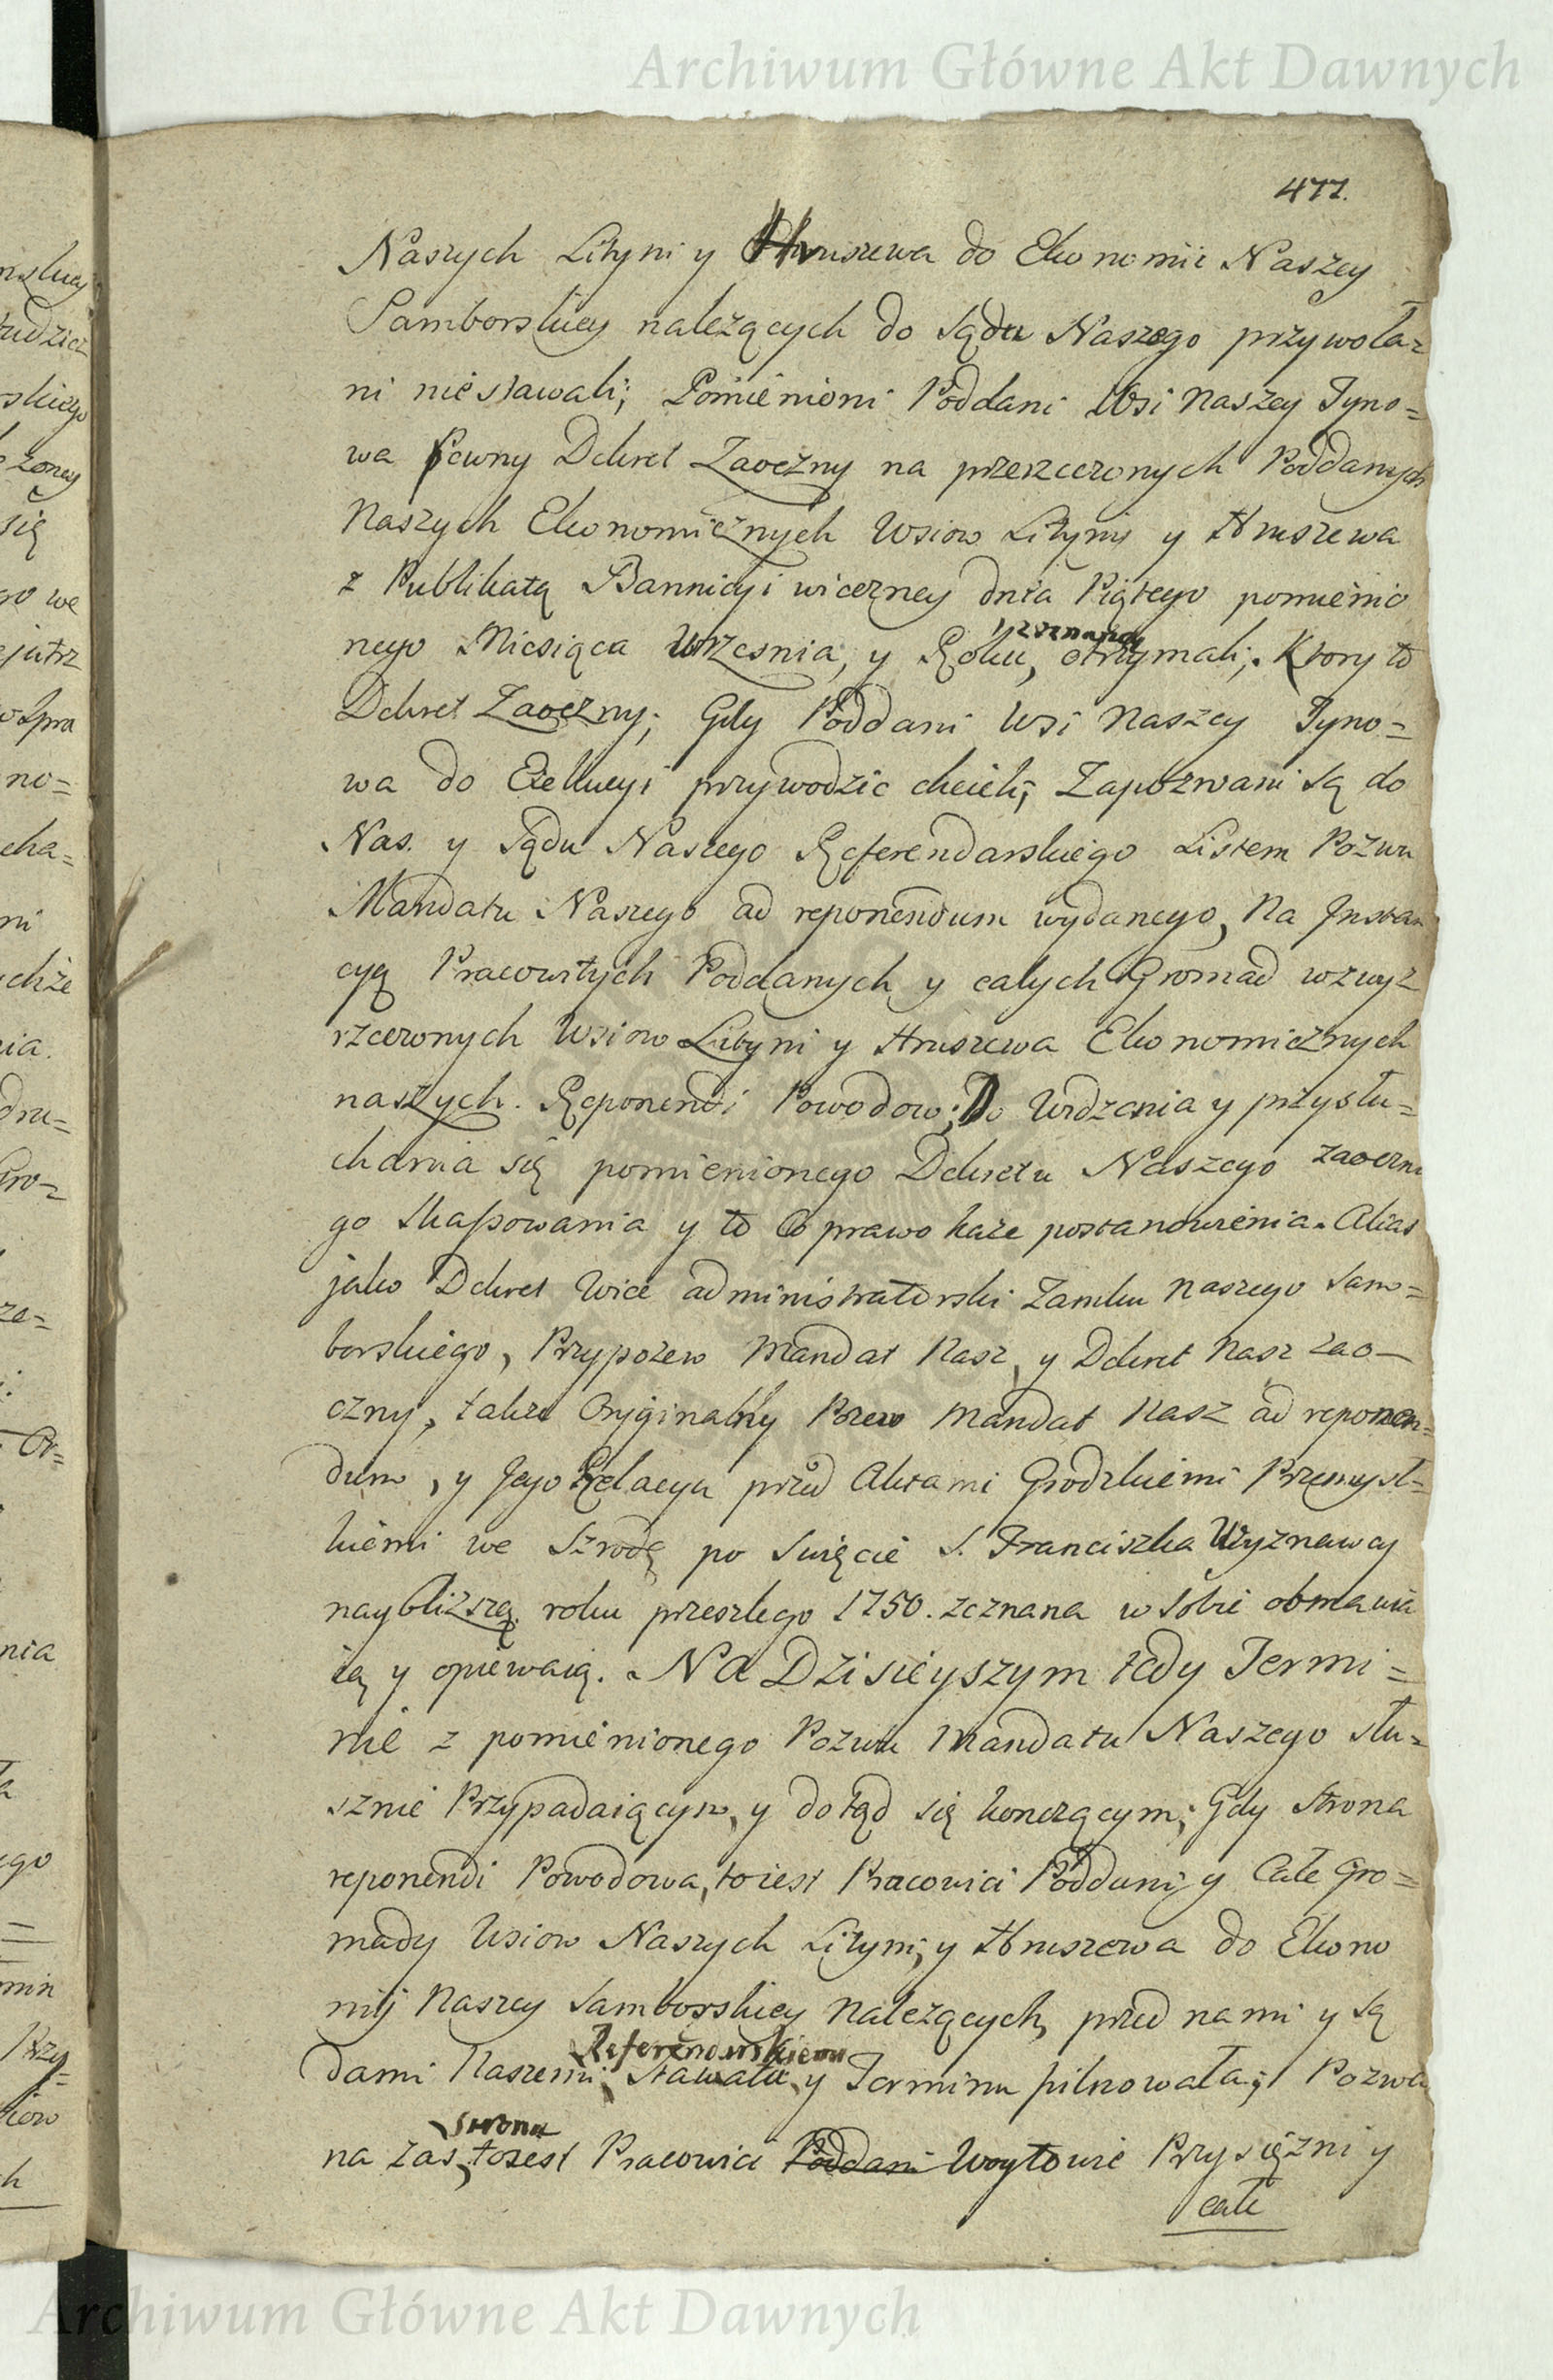 Archiwum Główne Akt Dawnych
477.
Naszych Lityni y Hruszewa do Ekonomii Naszey
Samborskiey należących do Sądu Naszego przywoła=
ni niestawali; Pomienioni Poddani Wsi Naszey Tyno=
wa pewny Dekret Zaoczny na przerzeczonych Poddanych
Naszych Ekonomicznych Wsiow Lityni y Hruszewa
z Publikatą Bannicyi wieczney dnia Piątego pomienio
nego Miesiąca Wrzesnia, y Roku, otrzymali; Ktory to
Dekret Zaoczny; Gdy Poddani Wsi Naszey Tyno=
wa do Exekucyi przywodzic chcieli, Zapozwani są do
Nas. y Sądu Naszego Referendarskiego Listem Pozwu
Mandatu Naszego ad reponendum wydanego, Na Instan
cyą Pracowitych Poddanych y całych Gromad wzwyz
rzeczonych Wsiow Lityni y Hruszewa Ekonomicznych
naszych. Reponendi Powodow; Do Widzenia y przysłu=
chania się pomienionego Dekretu Naszego zaoczne
go Skassowania y to Co prawo każe postanowienia. Alias
jako Dekret Wice administratorski Zamku naszego Sam=
borskiego, Przypozew Mandat Nasz, y Dekret Nasz zao=
czny, takze Oryginalny Pozew Mandat Nasz ad reponen=
dum, y Jego Relacya przed Aktami Grodzkiemi Przemysl=
kiemi we Szrodę po Swięcie S. Franciszka Wyznawcy
naybliższą roku przeszłego 1750. zeznana w sobie obmawia
ią y opiewaią. Na Dzisieyszym tedy Termi=
nie z pomienionego Pozwu Mandatu Naszego słu=
sznie Przypadaiącym, y dotąd się konczącym; Gdy Strona
reponendi Powodowa, to iest Pracowici Poddani y Całe Gro=
mady Wsiow Naszych Lityni, y Hruszewa do Ekono
mij Naszey Samborskiey Należących, przed nami y Są
Referendarskiemi
dami Naszemi Stawała, y Terminu pilnowała; Pozwa
Strona
na zas, to iest Pracowici Poddani Woytowie Przysiężni y
całe
Archiwum Główne Akt Dawnych